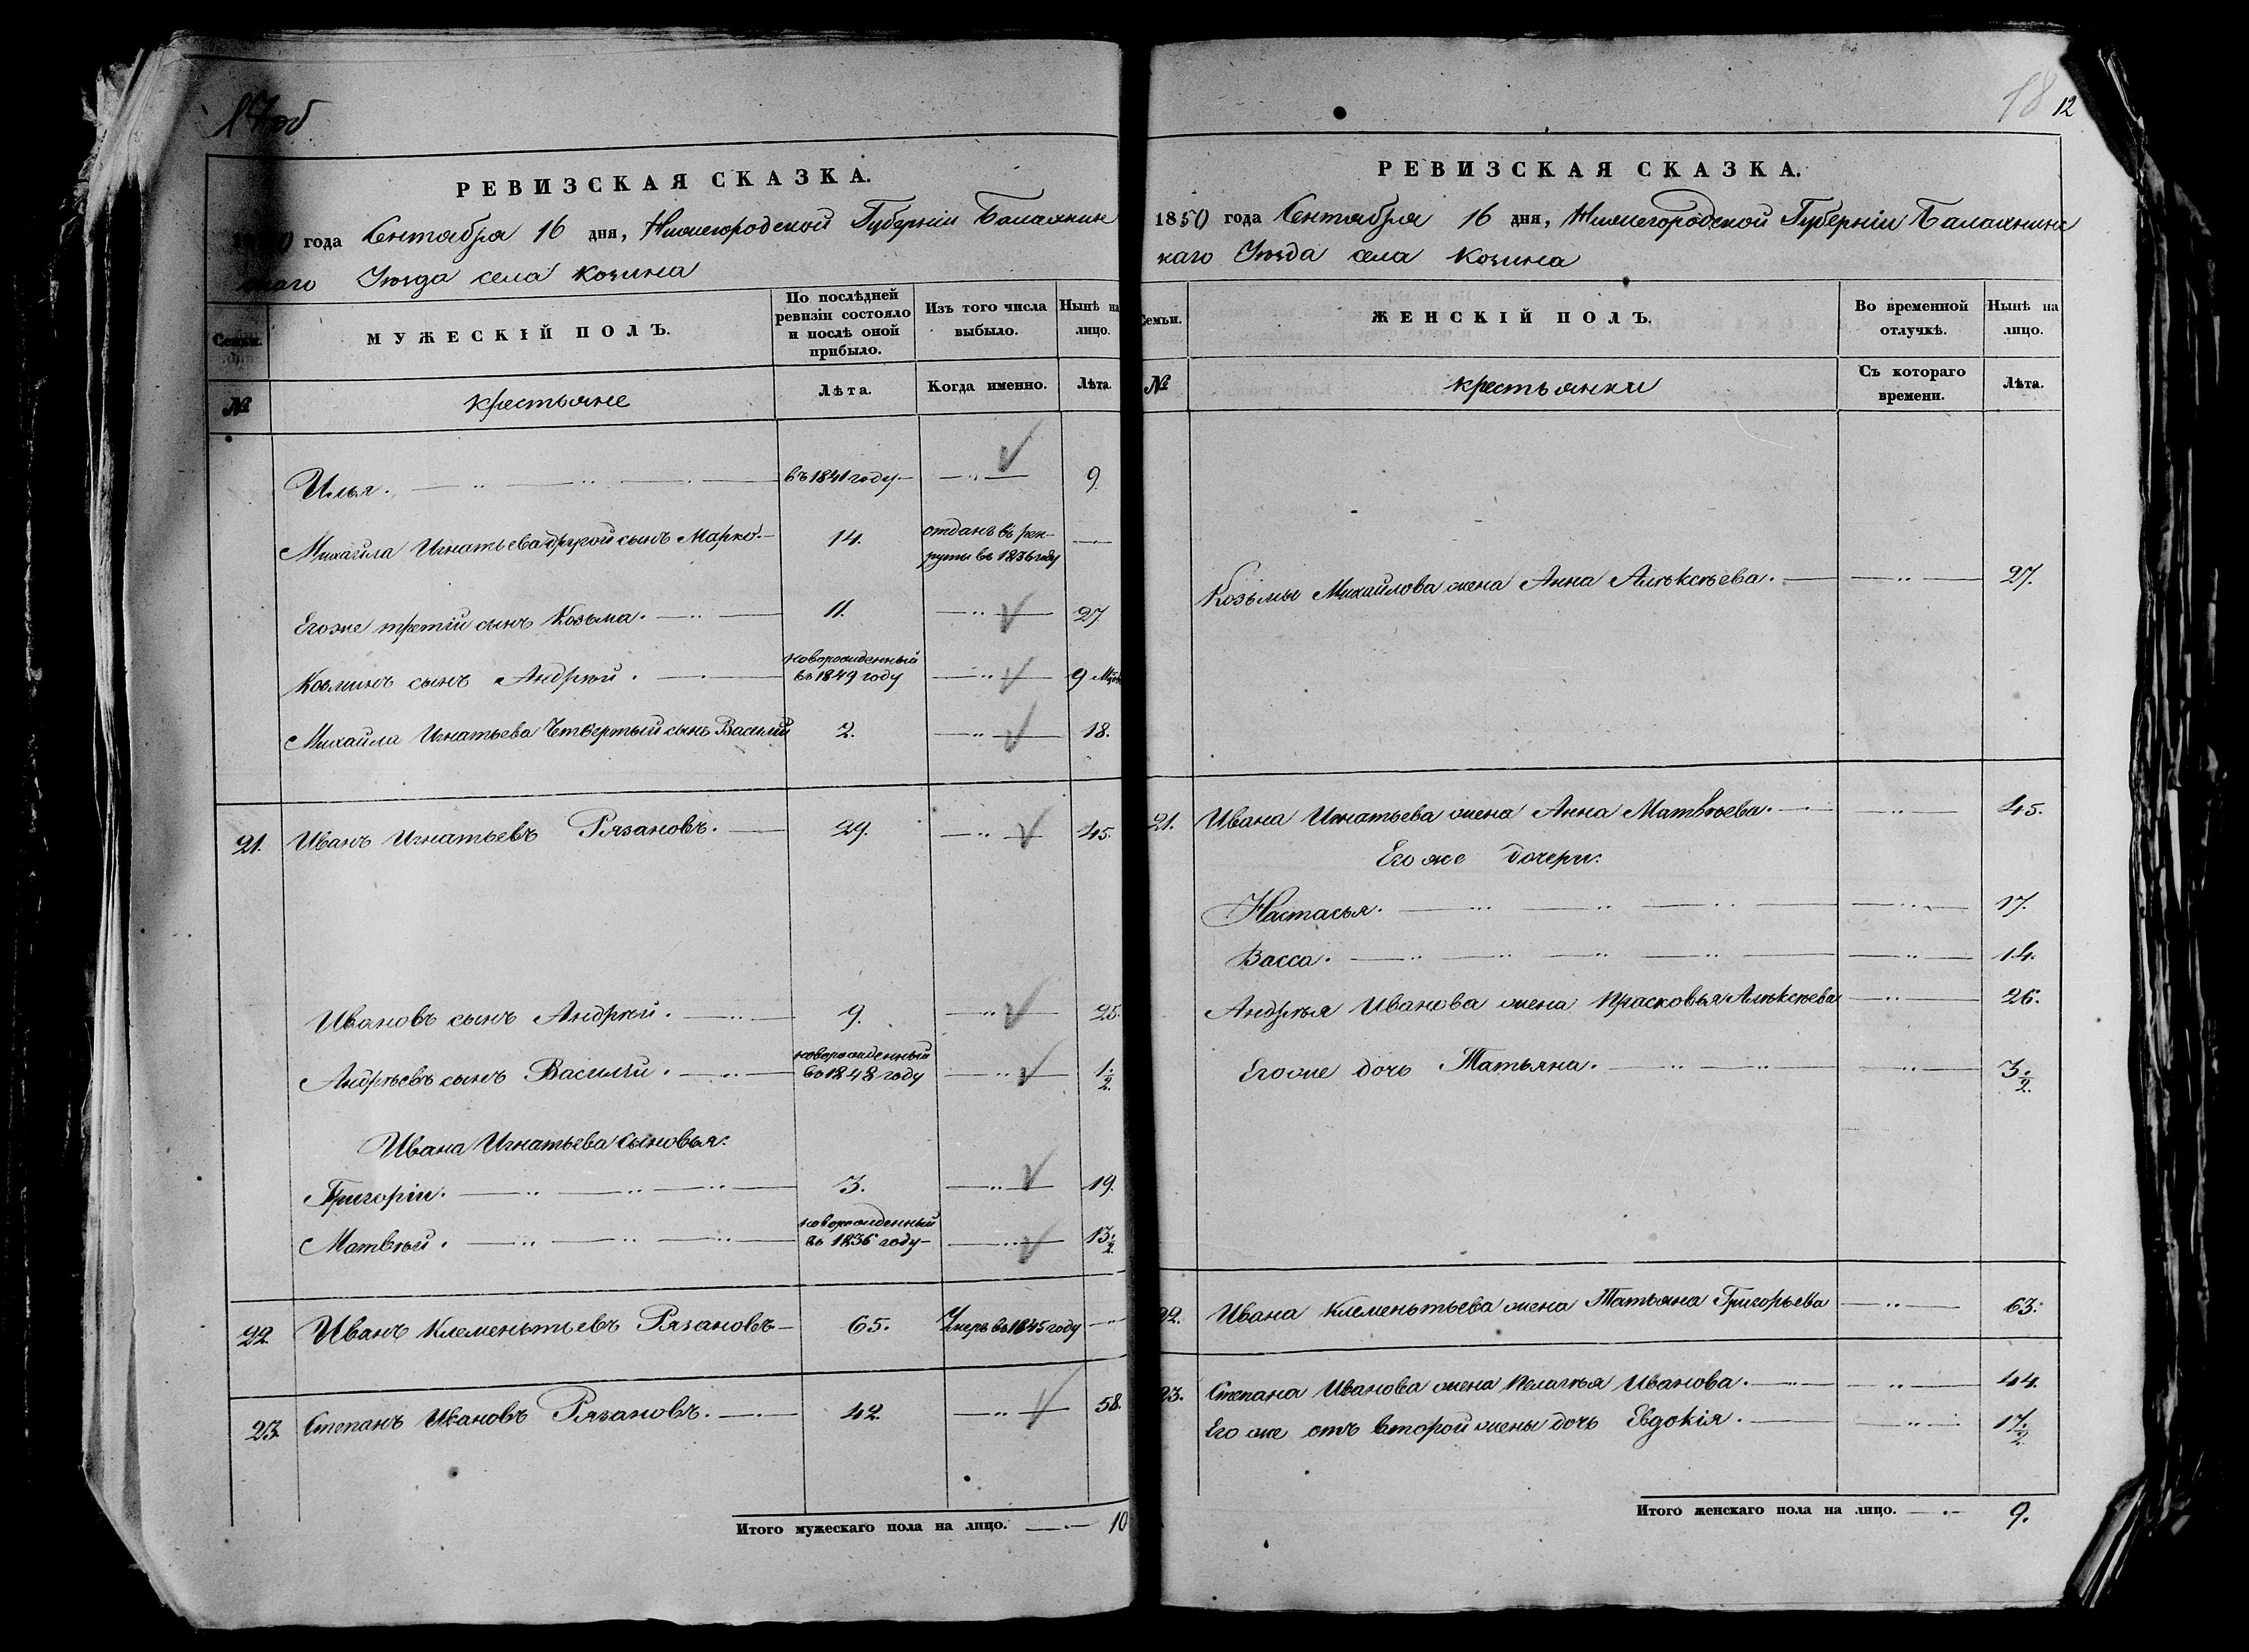 17об
РЕВИЗСКАЯ СКАЗКА.
года Сентября 16 дня, Нижегородской Губерніи Балахнин
скаго Уѣзда села Козина
Семьи.
МУЖЕСКІЙ ПОЛЪ.
По послѣдней ревизіи состояло и послѣ оной прибыло.
Изъ того числа выбыло.
Нынѣ на лицо.
№
крестьяне
Лѣта.
Когда именно.
Лѣта.
Илья. въ 1841 году 9.
Михайла Игнатьева другой сынъ Марко. 14. отданъ въ рек-
руты въ 1836 году
Егоже третій сынъ Козьма. 11. 27
Козминъ сынъ Андрей. новорожденный
въ 1849 году 9 Мцов
Михайла Игнатьева Четвертый сынъ Василій 2. 18.
21. Иванъ Игнатьевъ Рязановъ. 29. 45.
Ивановъ сынъ Андрѣй. 9. 25.
Андрѣевъ сынъ Василій. новорожденный
въ 1848 году 1.½.
Ивана Игнатьева сыновья:
Григорій. 3. 19.
Матвѣй. новорожденный
въ 1836 году 13.½.
22. Иванъ Клеменьтьевъ Рязановъ 65. Умеръ въ 1845 году
23. Степанъ Ивановъ Рязановъ. 42. 58.
Итого мужескаго пола на лицо. 10
18 12
РЕВИЗСКАЯ СКАЗКА.
1850 года Сентября 16 дня, Нижегородской Губерніи Балахнинс
каго Уѣзда села Козина
Семьи.
ЖЕНСКІЙ ПОЛЪ.
Во временной отлучкѣ.
Нынѣ на лицо.
№
крестьянки
Съ котораго времени.
Лѣта.
Козьмы Михайлова жена Анна Алѣксѣева. 27.
21. Ивана Игнатьева жена Анна Матвѣева. 45.
Его же дочери:
Настасья. 17.
Васса. 14.
Андрѣя Иванова жена Прасковья Алѣксѣева 26.
Егоже дочь Татьяна. 3.½.
22. Ивана Клеменьтьева жена Татьяна Григорьева 63.
23. Степана Иванова жена Пелагѣя Иванова. 44.
Его же отъ второй жены дочь Евдокія. 17.½.
Итого женскаго пола на лицо. 9.